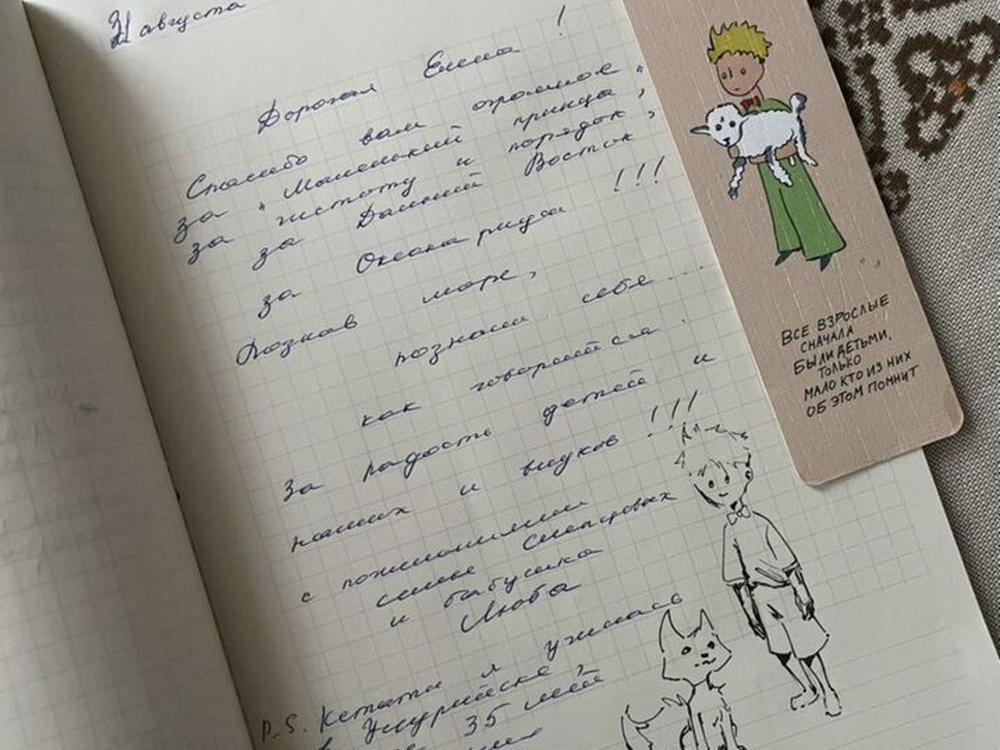 21 августа
Дорогая Елена!
Спасибо вам огромное
за "Маленький принца",
за чистоту и порядок,
за Дальний Восток
за Океана рица !!!
Познав море,
познаем себе...
как говорится.
За радость детей и
наших и внуков !!!
с пожеланиями
семье Слепцовых
и бабушка
Люба
P.S. Кстати я училась
в Уссурийске,
35 лет
ВСЕ ВЗРОСЛЫЕ
СНАЧАЛА
БЫЛИ ДЕТЬМИ,
ТОЛЬКО
МАЛО КТО ИЗ НИХ
ОБ ЭТОМ ПОМНИТ